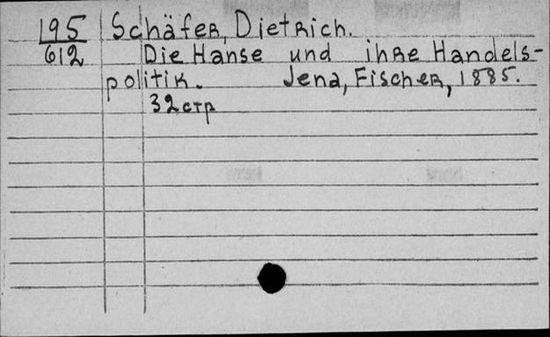 195 Schäfer, Dietrich.
612 Die Hanse und ihre Handels-
politik. Jena, Fischer, 1885.
32 стр